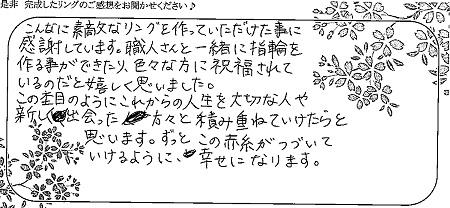 是非 完成したリングのご感想をお聞かせください♪
こんなに素敵なリングを作っていただけた事に
感謝しています。職人さんと一緒に指輪を
作る事ができたり、色々な方に祝福されて
いるのだと嬉しく思いました。
この杢目のようにこれからの人生を大切な人や
新しく出会った方々と積み重ねていけたらと
思います。ずっとこの赤糸がつづいて
いけるように、幸せになります。